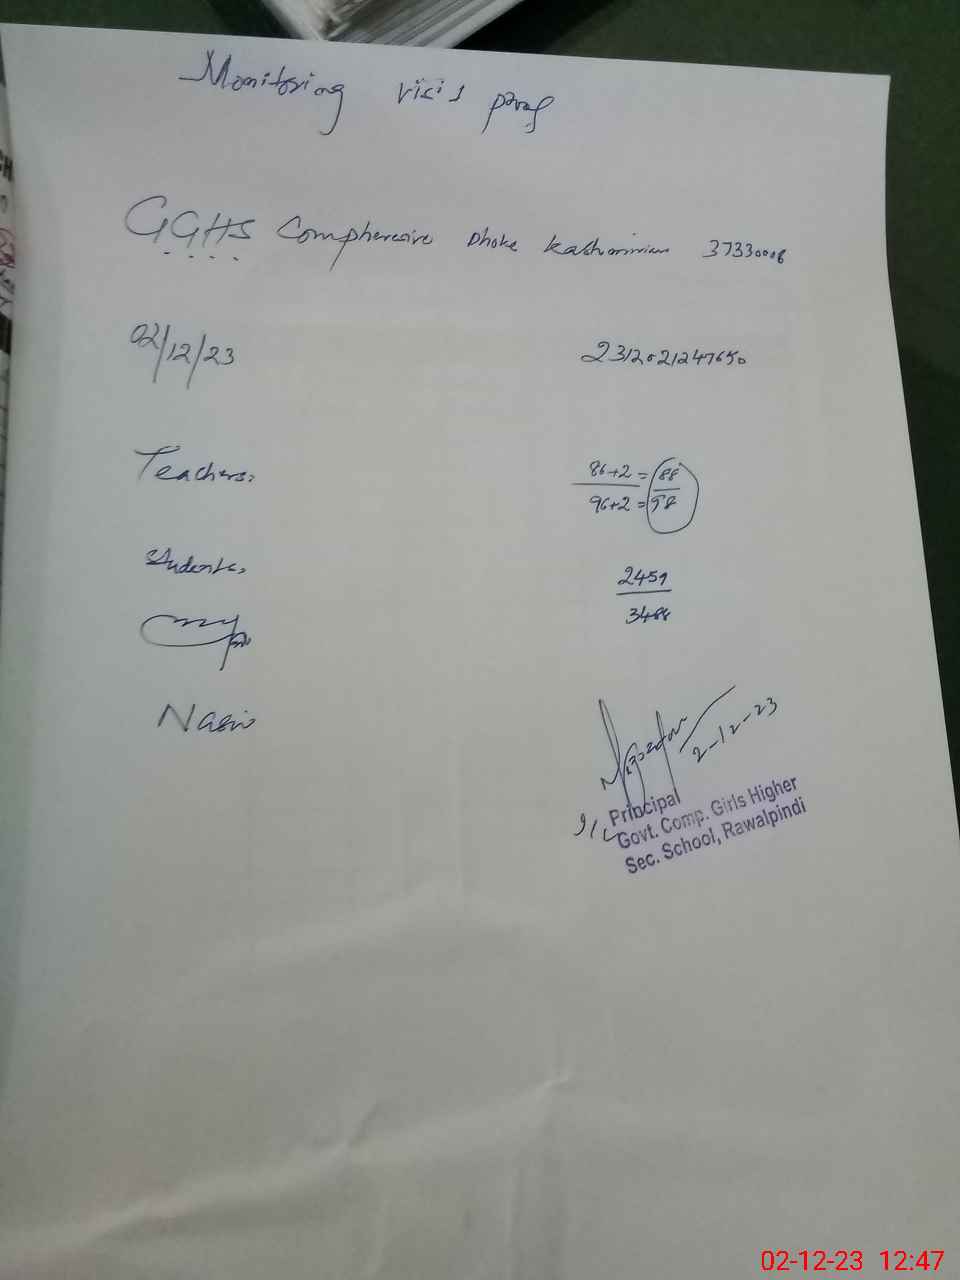 Monitoring visit proof
GGHS Comphensive Dhoke Kashmirian 37330006
02/12/23 2312021247650
Teachers: 86+2 = 88
96+2 = 98
Students: 2459
3488
Nasir
2-12-23
Principal
Govt. Comp. Girls Higher
Sec. School, Rawalpindi
02-12-23 12:47